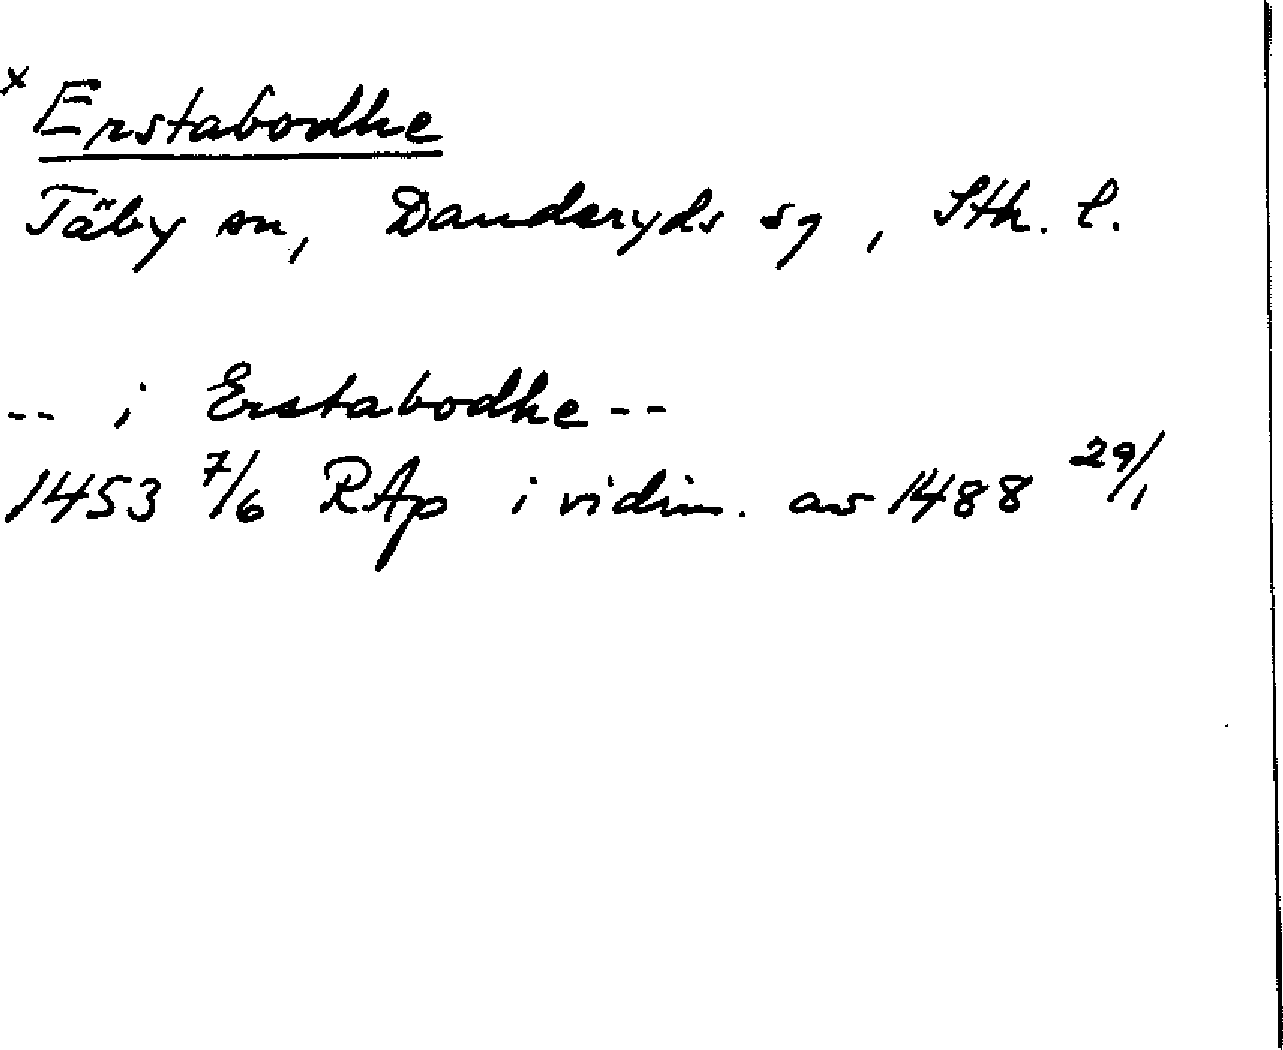 x Erstabodhe
Täby sn, Danderyds sg, Sth. l.
-- i Erstabodhe --
1453 7/6 RAp i vidim. av 1488 29/1